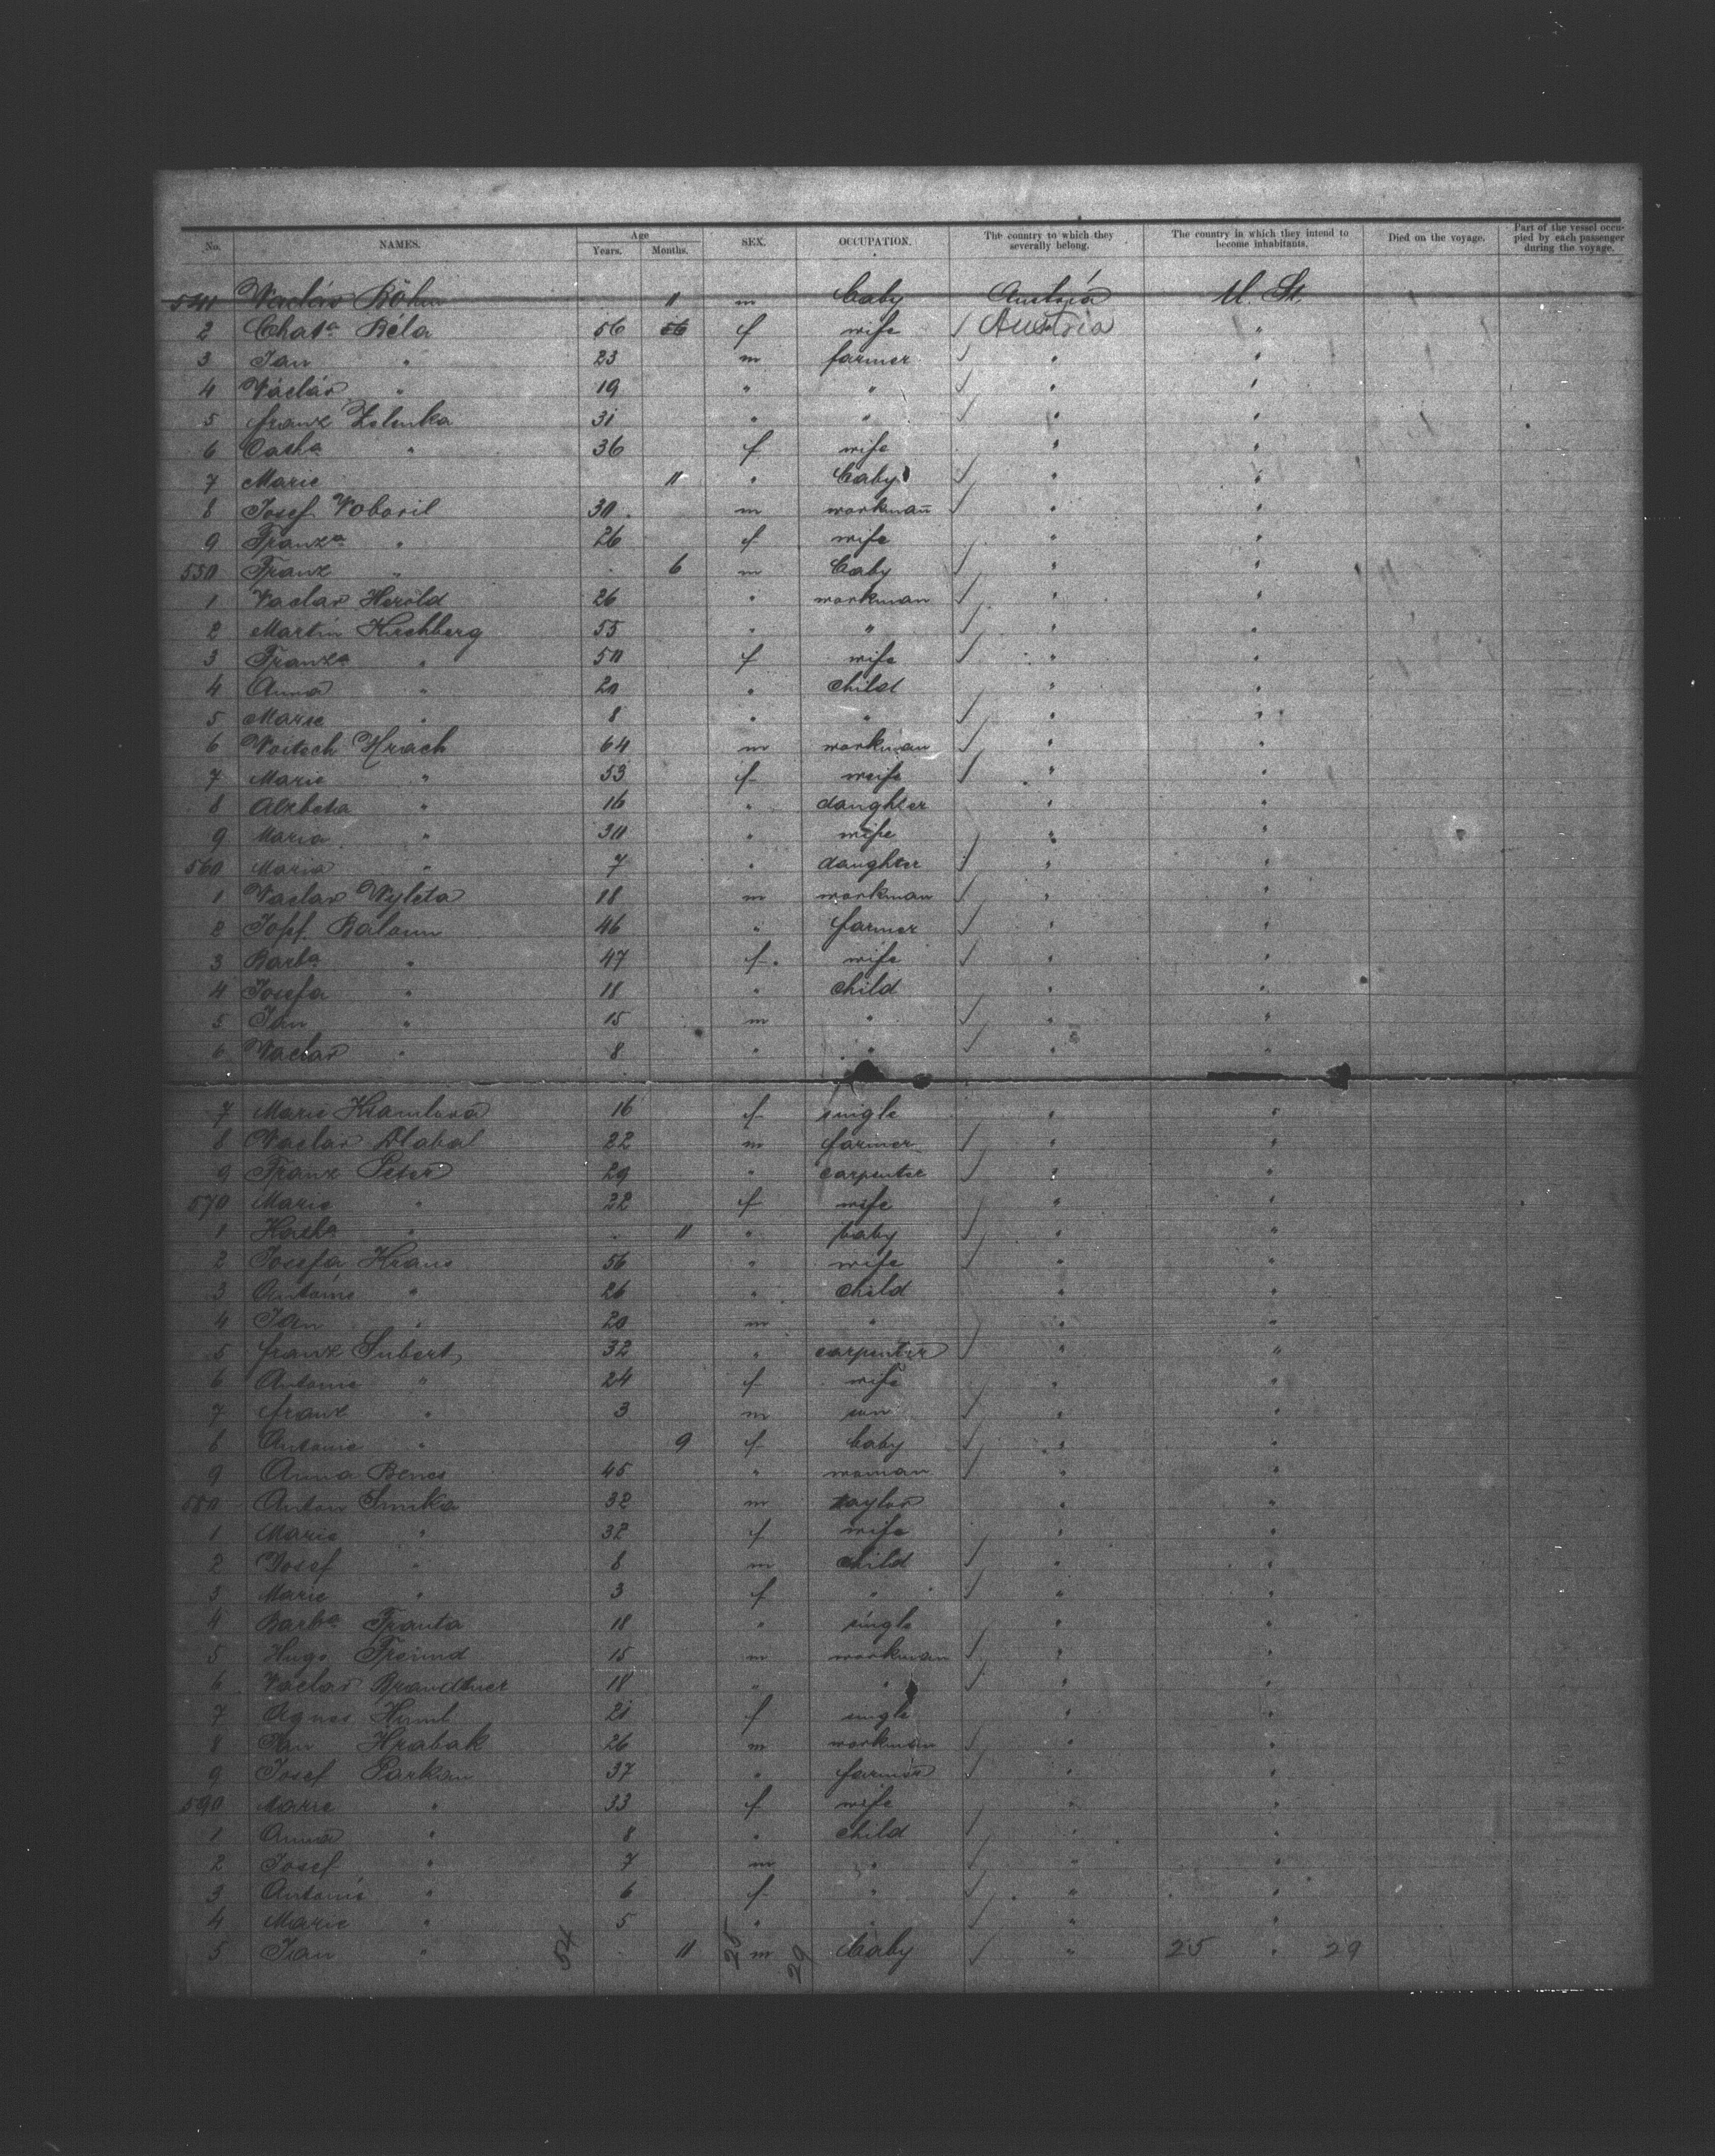 No. NAMES. Age Years. Months. SEX. OCCUPATION. The country to which they severally belong. The country in which they intend to become inhabitants. Died on the voyage. Part of the vessel occupied by each passenger during the voyage.
541 Vaclav Böhm 11 m baby Austria U. St.
2 Chata Béla 56 56 f wife Austria "
3 Jan " 23 m farmer " "
4 Václáv " 19 " " " "
5 franz Zelenka 31 " " " "
6 " 36 f wife " "
7 Marie 11 " baby " "
8 Josef Voboril 30 m workman " "
9 Franza " 26 f wife " "
550 Franz " 6 m baby " "
1 Vaclav Herold 26 " workman " "
2 Martin Hirschberg 55 " " " "
3 Franza " 50 f wife " "
4 Anna " 20 " child " "
5 Marie " 8 " " " "
6 Voitech Hrach 64 m workman " "
7 Marie " 53 f wife " "
8 Alzbeta " 16 " daughter " "
9 Maria " 30 " wife " "
560 Maria " 7 " daughter " "
1 Vaclav Vyleta 18 m workman " "
2 Josf. Baloun 46 " farmer " "
3 Barba " 47 f wife " "
4 Josefa " 18 " child " "
5 Jan " 15 m " " "
6 Vaclav " 8 " " " "
7 Marie 16 f single " "
8 Vaclav Dlabal 22 m farmer " "
9 Franz Peter 29 " carpenter " "
570 Marie " 22 f wife " "
1 Katha " 11 " baby " "
2 Josefa Kraus 56 " wife " "
3 Antonie " 26 " child " "
4 Jan " 20 m " " "
5 franz Subert 32 " carpenter " "
6 Antonie " 24 f wife " "
7 franz " 3 m son " "
8 Antonie " 9 f baby " "
9 Anna Benes 45 " woman " "
580 Anton 32 m taylor " "
1 Marie " 32 f wife " "
2 Josef " 8 m child " "
3 Marie " 3 f " " "
4 Barba Franta 18 " single " "
5 Hugo Freund 15 m workman " "
6 Vaclav Brandtner 18 " " " "
7 Agnes 21 f single " "
8 Jan Hrabak 26 m workman " "
9 Josef Parkan 37 " farmer " "
590 Marie " 33 f wife " "
1 Anna " 8 " child " "
2 Josef " 7 m " " "
3 Antonie " 6 f " " "
4 Marie " 5 " " " "
5 Jan " 54 11 25 m 29 baby " 25 " 29